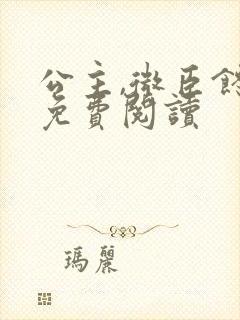 公主,微臣
免費閱讀
瑪麗